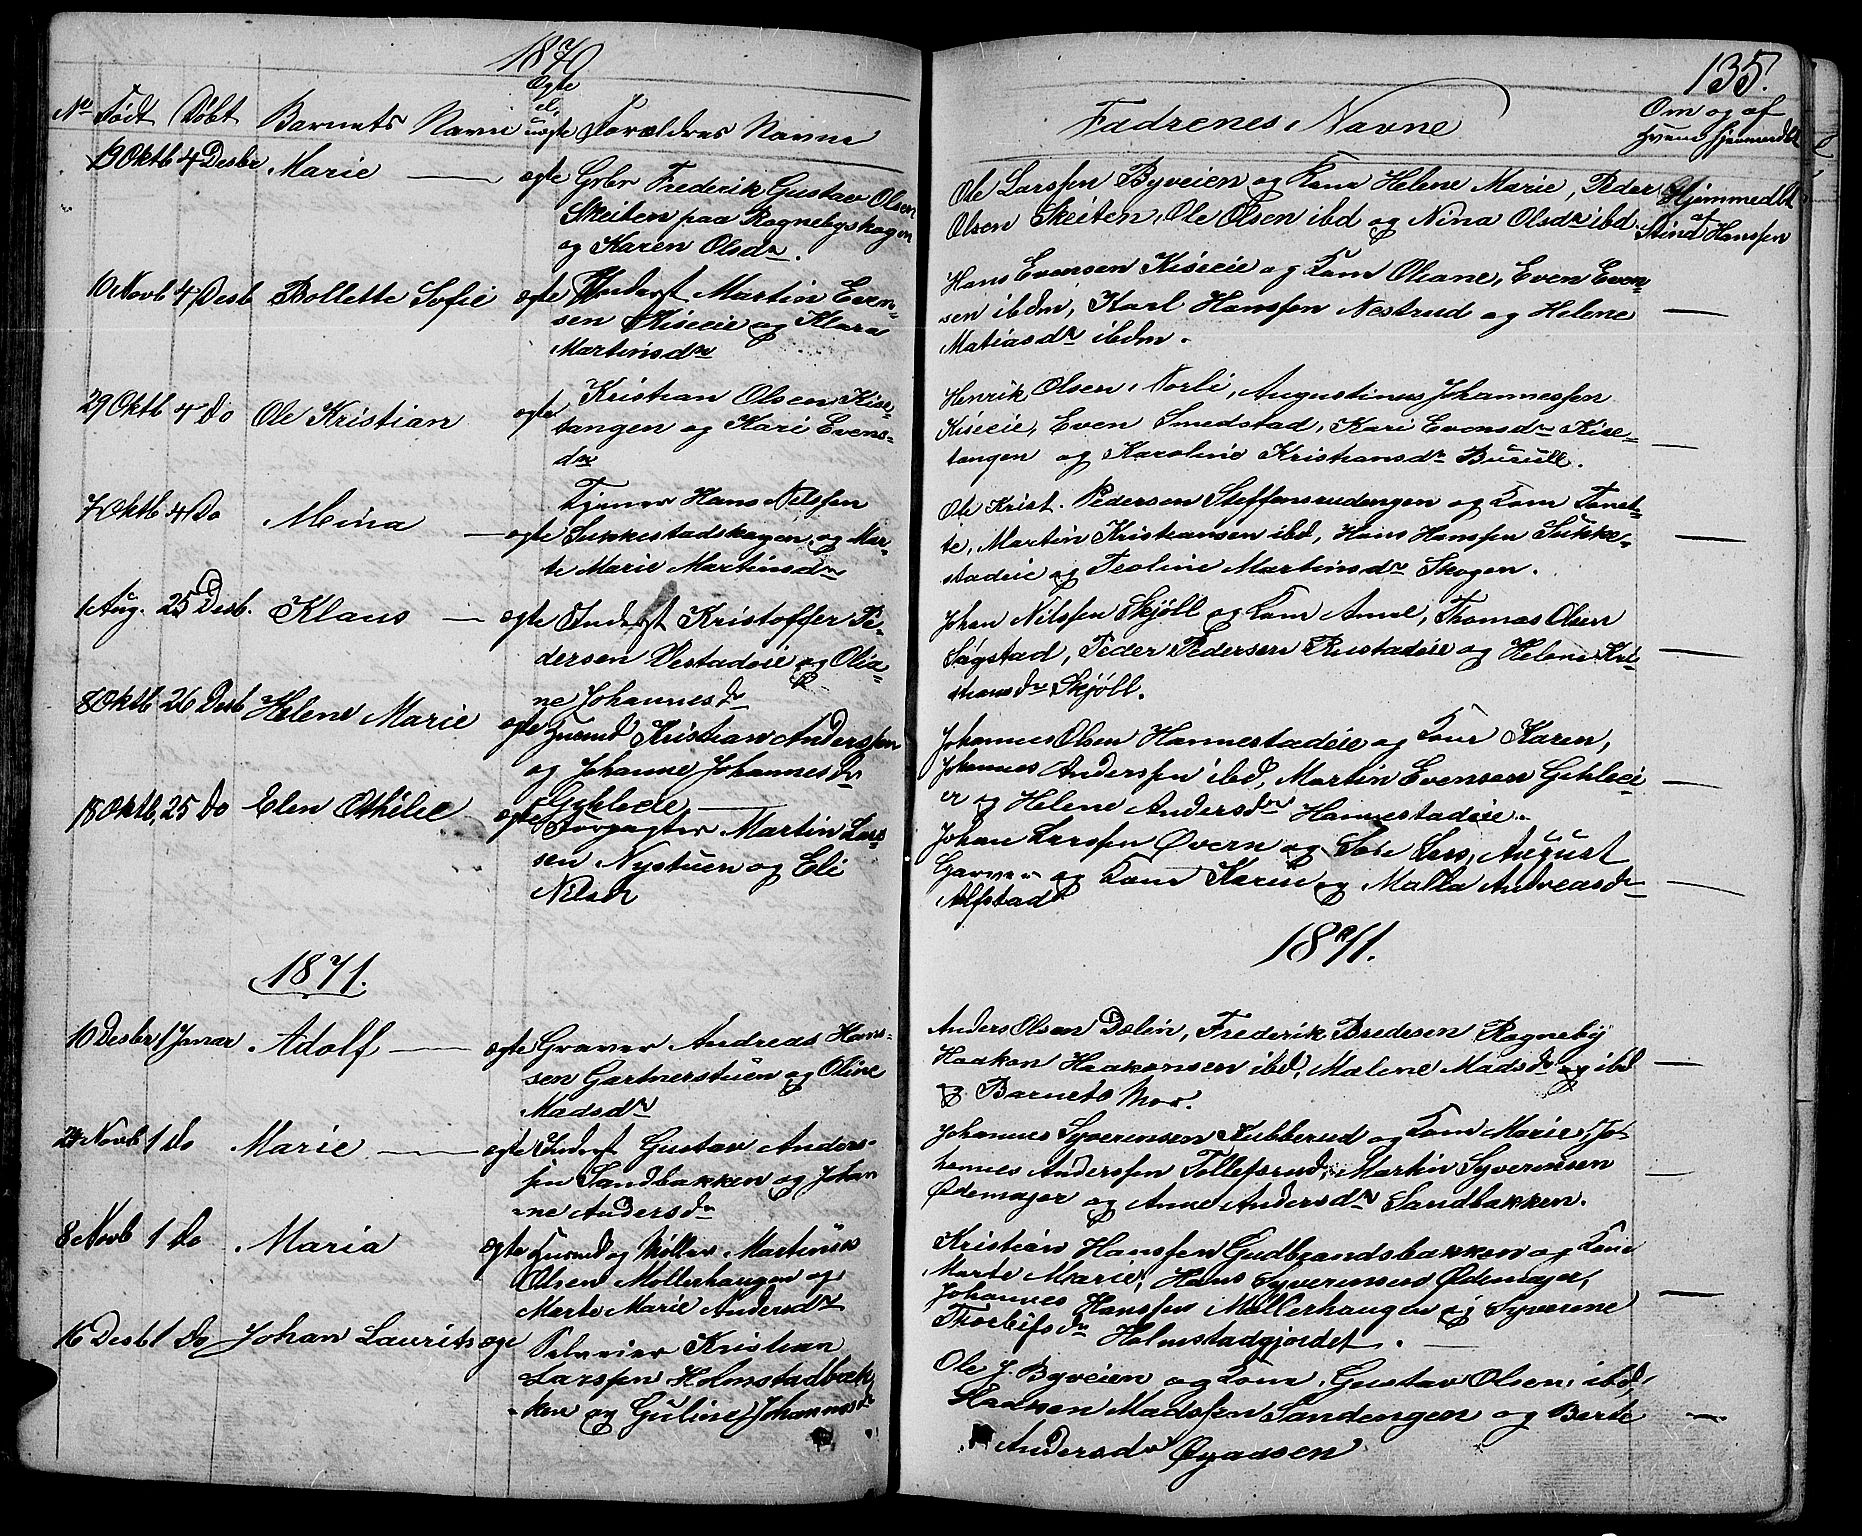 1870
135.
No Født Døbt Barnets Navn Ægte el. uægte Forældres Navne
Faddrenes Navne
Om og af hvem hjemmedbt
13 Oktb 4 Desbr Marie — ægte Grbr Frederik Gustav Olsen
Skeiten paa Rognebyskogen
og Karen Olsdr.
Ole Larssen Byveien og Kone Helene Marie, Peder
Olsen Skeiten, Ole Olsen ibd og Nina Olsdr ibd.
Hjemmedbt
af
Stina Hanssen
10 Novb 4 Desb Bollette Sofie ægte Inderst Martin Even-
sen Kiseeie og Klara
Martinsdr
Hans Evensen Kiseeie og Kone Oleane, Even Even-
sen ibdm, Karl Hanssen Nestrud og Helene
Matiasdr ibdm. —
29 Oktb 4 Do Ole Kristian ægte Kristian Olsen Kise-
tangen og Kari Evens-
dr
Henrik Olsen Norli, Augustinus Johannessen
Kiseeie, Even Smedstad, Kari Evensdr Kise-
tangen og Karoline Kristiansdr Burull. —
7 Oktb 4 Do Mina — ægte Tjener Hans Nilssen
Sukkestadskogen og Mar-
te Marie Martinsdr
Ole Krist. Pedersen Steffensrudengen og Kone Janet-
te, Martin Kristiansen ibd, Hans Hanssen Sukke-
stadeie og Teoline Martinsdr Skogen. —
1 Aug. 25 Desb. Klaus — ægte Inderst Kristoffer Pe-
dersen Vestadeie og Olia-
ne Johannesdr
Johan Nilssen Skjøll og Kone Anne, Thomas Olsen
Sagstad, Peder Pedersen Rustadeie og Helene Kri-
stiansdr Skjøll. —
8 Oktb 26 Desb Helene Marie ægte Husmd Kristian Anderssen
og Johanne Johannesdr
Gihleeie —
Johannes Olsen Hannestadeie og Kone Karen,
Johannes Anderssen ibd, Martin Evensen Gihleei-
er og Helene Andersdr Hannestadeie. —
18 Oktb, 25 Do Elen Othilie ægte Forpagter Martin Lars-
sen Nystuen og Eli
Nilsdr
Johan Larssen Øvern og Lars, August
Garver og Kone Karen og Malla Andreasdr
Alfstad —
1871.
1871.
10 Desbr 1 Januar Adolf — ægte Graver Andreas Hans-
sen Gartnerstuen og Oline
Madsdr
Anders Olsen Dælin, Frederik Bredesen Rogneby
Haakon Haakonsen ibd, Malene Madsdr og ibd
og Barnets Mor. —
24 Novb 1 Do Marie — ægte Inderst Gustav Anders-
sen Sandbakken og Johan
-ne Andersdr
Johannes Syverinsen Kubberud og Kone Marie, Jo
hannes Anderssen Tollefsrud, Martin Syverinsen
Ødemager og Anne Andersdr Sandbakken. —
8 Novb 1 Do Maria ægte Husmd og Møller Martinus
Olsen Møllerhaugen og
Marte Marie Andersdr
Kristian Hanssen Gudbrandsbakken og Kone
Marte Marie, Hans Syverinsen Ødemager,
Johannes Hanssen Møllerhaugen og Syverine
Thorleifsdr Holmstadgjordet. —
16 Desb 1 Do Johan Laurits ægte Selveier Kristian
Larssen Holmstadbak
-ken og Guline Johannesdr
Ole J. Byveien og Kone, Gustav Olsen ibd,
Haakon Madssen Sandengen og Berte
Andersdr Øyaasen —